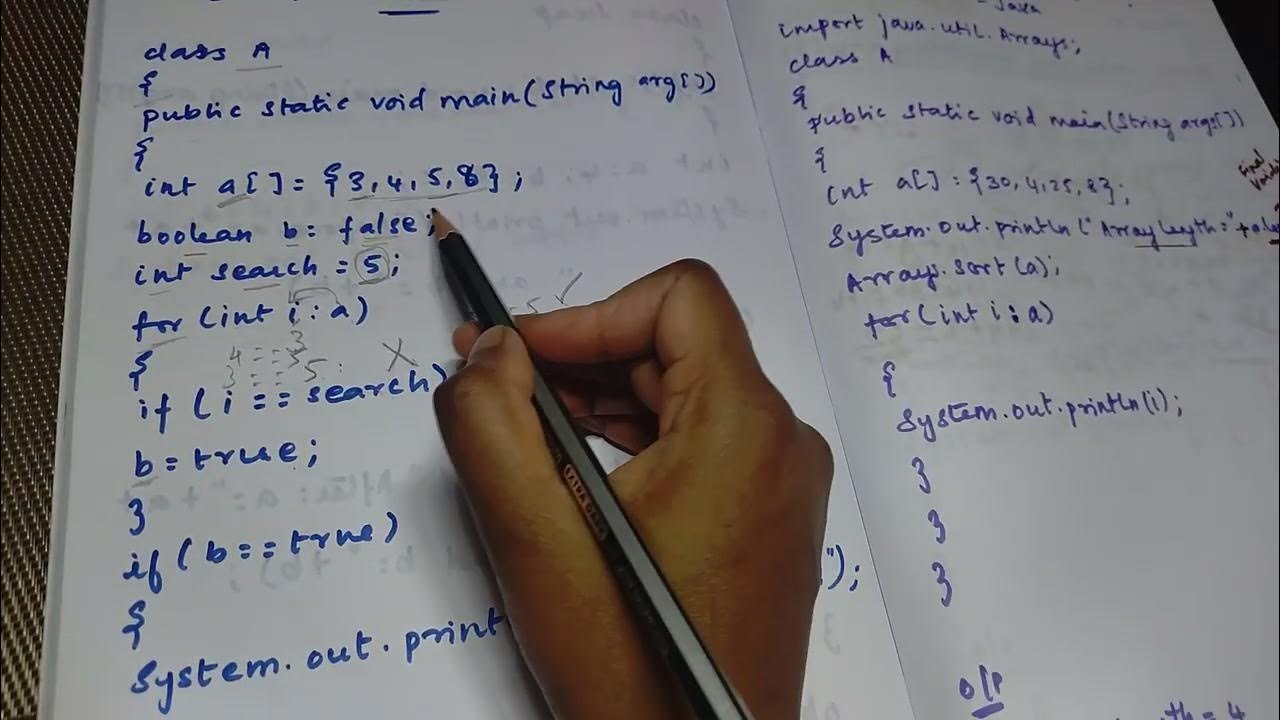 class A
{
public static void main(String arg[])
{
int a[] = {3,4,5,8};
boolean b = false;
int search = 5;
for (int i : a)
4 == 5
3 == 5
{
if (i == search)
b = true;
}
if (b == true)
{
System.out.print
");
Java
import java.util.Arrays;
class A
{
public static void main(String args[])
{
int a[] = {30,4,25,8};
System.out.println("Array length="+a
Arrays.sort(a);
for (int i : a)
{
System.out.println(i);
}
}
}
o/p
th = 4